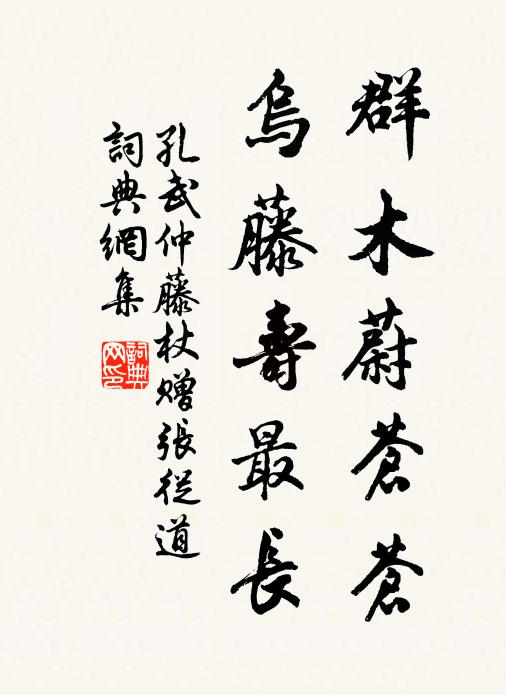 群木蔚蒼蒼
烏藤壽最長
孔武仲藤杖贈張從道
詞典網集
詞典网印